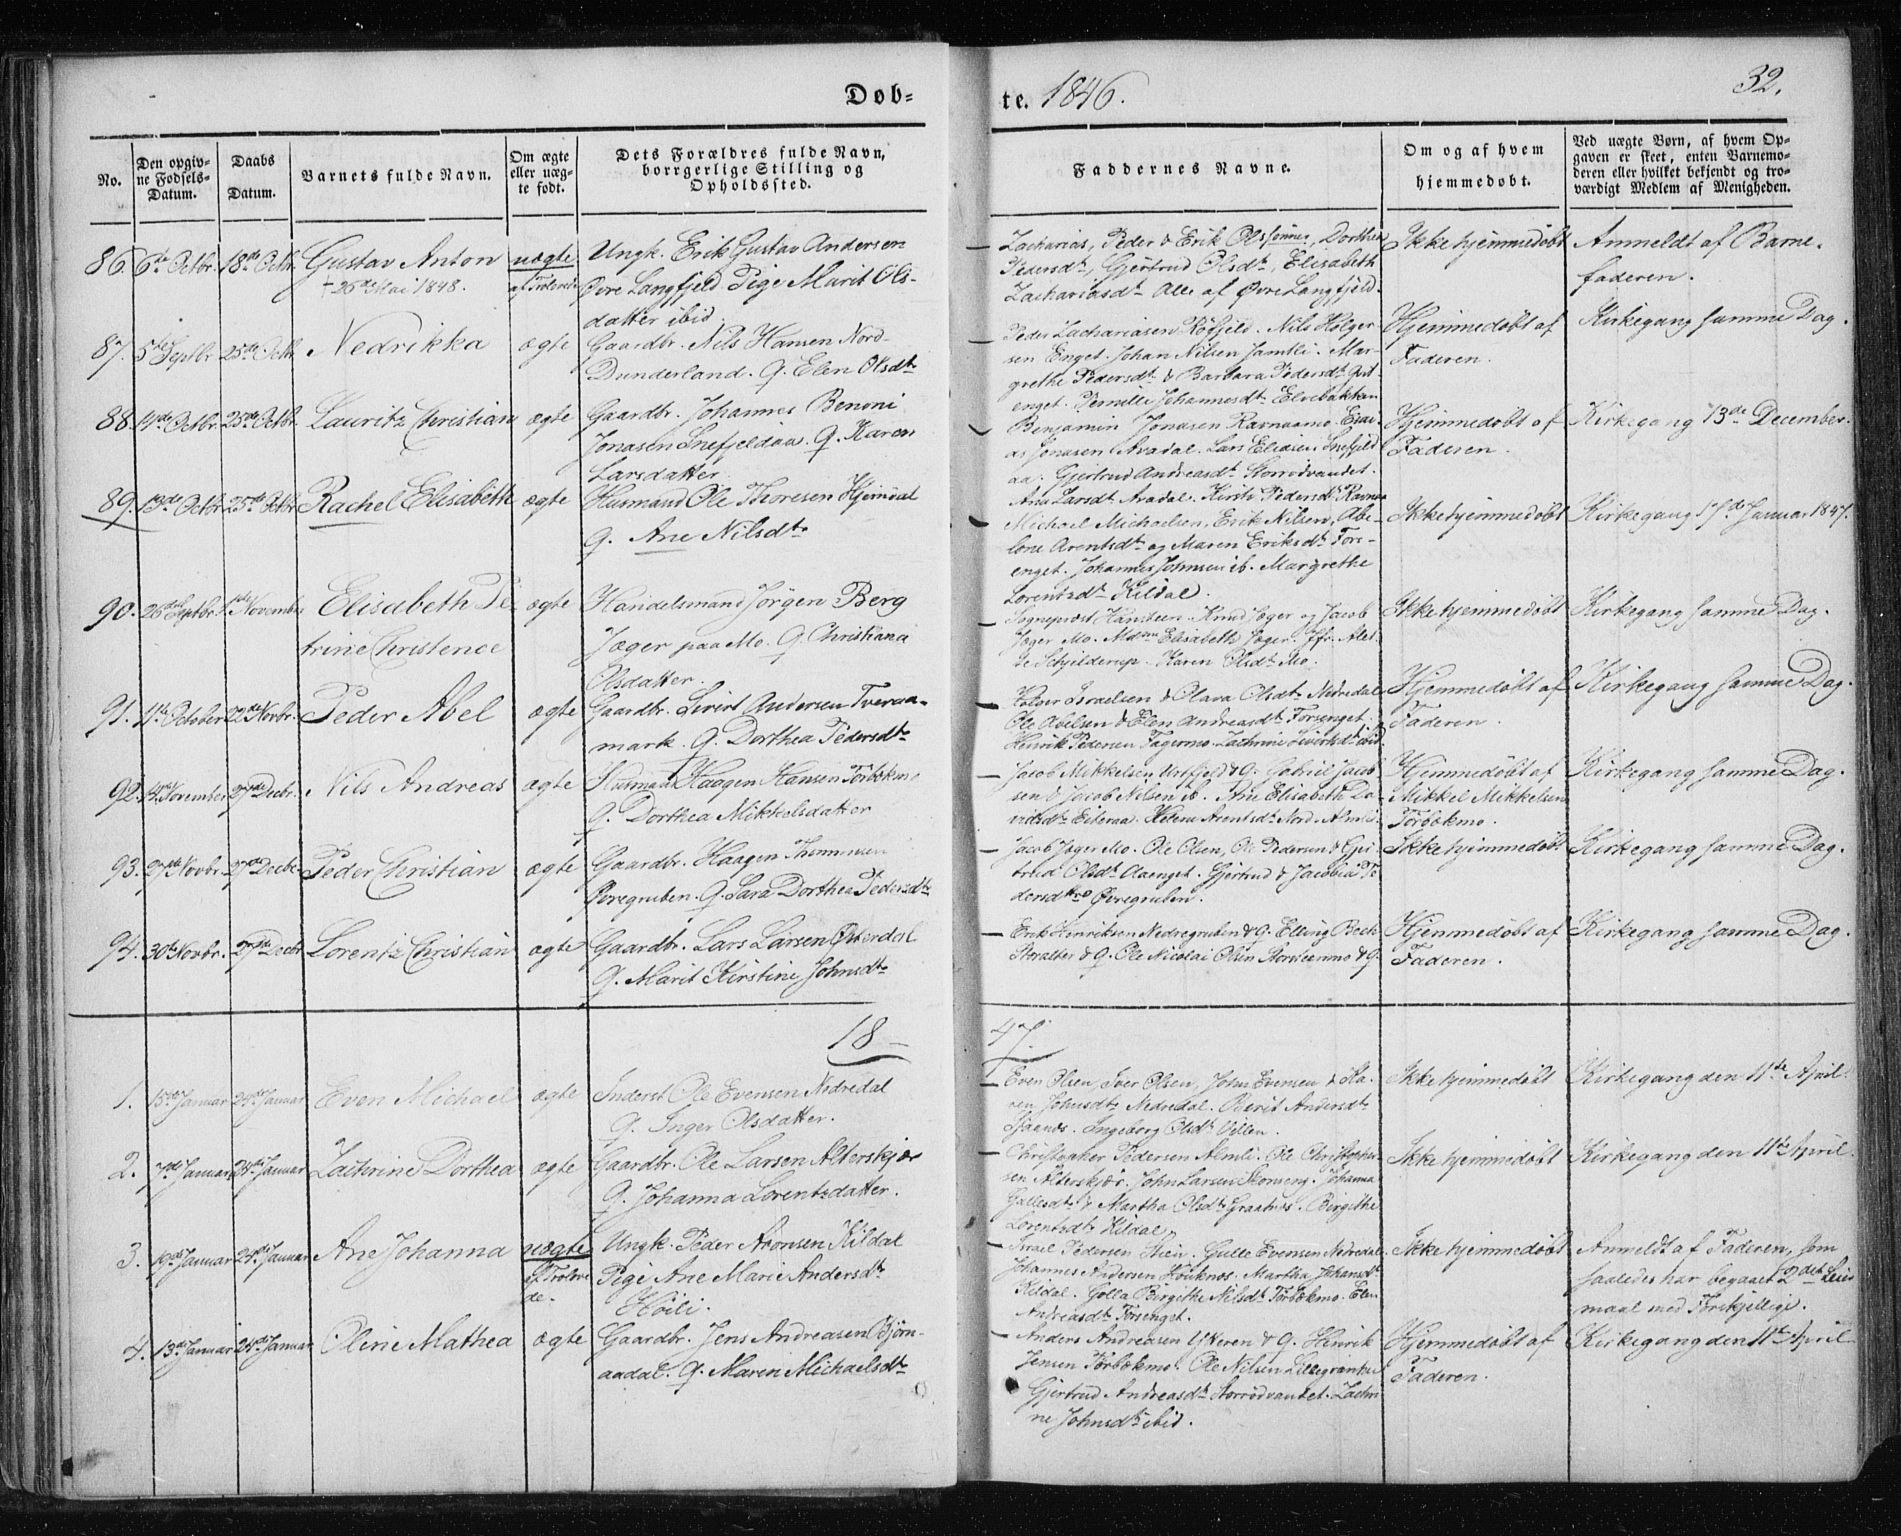 Døb=
te. 1846.
32.
No.
Den opgiv-
ne Fødsels-
Datum.
Daabs
Datum.
Barnets fulde Navn.
Om ægte
eller uæg-
te født.
Dets Forældres fulde Navn,
borrgerlige Stilling og
Opholdssted.
Faddernes Navne.
Om og af hvem
hjemmedøbt.
Ved uægte Børn, af hvem Op-
gaven er skeet, enten Barnemo-
deren eller hvilket bekjendt og tro-
værdigt Medlem af Menigheden.
86. 6te Octbr. 18de Octbr. Gustav Anton
+ 26de Mai 1848.
uægte
af Trolovede
Ungk. Erik Gustav Andersen
Øvre Langfjeld Pige Marit Ols-
datter ibid.
Zacharias, Peder & Erik Olssønner, Dorthea
Pedersdt., Gjertrud Olsdt., Elisabeth
Zachariasdt. Alle af Øvre Langfjeld.
Ikke hjemmedøbt
Anmeldt af Barne-
faderen.
87. 5te Septbr. 25de Octbr. Nedrikka
ægte
Gaardbr. Nils Hansen Nord-
Dunderland. Q. Elen Olsdt.
Peder Zachariasen Røfjeld. Nils Holger-
sen Enget. Johan Nilsen Jamtli. Mar-
grethe Pedersdt. & Barbara Pedersdt.
enget. Pernille Johannesdt.
Hjemmedøbt af
Faderen.
Kirkegang samme Dag.
88. 11te Octbr. 25de Octbr. Lauritz Christian
ægte
Gaardbr. Johannes Benoni
Jonasen Snefjeldaa. Q. Karen
Larsdatter.
Benjamin Jonasen Ravnaamo. Esai-
as Jonasen Avadal. Lars Eliasen Snefjeld
aa. Gjertrud Andreasdt. Storrodvandet.
Ane Larsdt. Avadal. Kirsti Pedersdt. Ravnaa
Hjemmedøbt af
Faderen.
Kirkegang 13de December.
89. 13de Octbr. 25de Octbr. Rachel Elisabeth
ægte
Husmand Ole Thoresen Hjemdal
Q. Ane Nilsdt.
Michael Michaelsen, Erik Nilsen, Abe-
lone Arentsdt. og Maren Eriksdt. Fors-
enget. Johannes Johnsen ib. Margrethe
Lorentzdt. Kildal.
Ikke hjemmedøbt
Kirkegang 17de Januar 1847.
90. 26de Septbr. 1ste November Elisabeth Pe
trine Christence
ægte
Handelsmand Jørgen Berg
Jæger paa Mo. Q Christiana
Olsdatter.
Sogneprest Hansteen. Knud Jæger og Jacob
Jæger Mo. Mdme Elisabeth Jæger. Jfr. Alet-
te Schjelderup. Karen Olsdt. Mo.
Ikke hjemmedøbt
Kirkegang samme Dag.
91. 11te October 22de Novbr. Peder Abel
ægte
Gaardbr. Sivert Andersen Tveraa-
mark. Q. Dorthea Pedersdt.
Israelsen & Olava Olsdt. Nedredal
Ole Abelsen & Elen Andreasdt. Forsenget.
Henrik Pedersen Fagermo. Zachrine Sivertsdt. ibid.
Hjemmedøbt af
Faderen.
Kirkegang samme Dag.
92. 4de November 27de Decbr. Nils Andreas
ægte
Husmand Haagen Hansen Forbækmo
Q. Dorthea Mikkelsdatter
Jacob Mikkelsen Urtfjeld & Q. Gabriel Jacob
sen & Jacob Nilsen ib. Ane Elisabeth Da-
vidsdt. Eiteraa. Helena Arentsdt. Nord-Almli.
Hjemmedøbt af
Mikkel Mikkelsen
Forbækmo.
Kirkegang samme Dag.
93. 27de Novbr. 27de Decbr. Peder Christian
ægte
Gaardbr. Haagen Thommesen
Øvregruben. Q. Sara Dorthea Pedersdt.
Jacob Jæger Mo. Ole Olsen, Ole Pedersen & Gjer
trud Olsdt. Aaenget. Gjertrud & Jacobia Pe
dersdtre. Øvregruben.
Ikke hjemmedøbt
Kirkegang samme Dag.
94. 30te Novbr. 27de Decbr. Lorentz Christian
ægte
Gaardbr. Lars Larsen Østerdal
Q. Marit Kirstine Johnsdt.
Erik Henriksen Nedregruben & Q. Elling Bech
Storalter & Q. Ole Nicolai Olsen & Q.
Hjemmedøbt af
Faderen.
Kirkegang samme Dag.
18
47.
1. 15de Januar 24de Januar Even Michael
ægte
Inderst Ole Evensen Nedredal
Q. Inger Olsdatter.
Even Olsen, Iver Olsen, John Evensen & Ka-
ren Johnsdt. Nedredal. Berit Andersdt.
Sjaanes. Ingeborg Olsdt.
Ikke hjemmedøbt
Kirkegang den 11te April.
2. 7de Januar 24de Januar Zachrine Dorthea
ægte
Gaardbr. Ole Larsen Alterskjær
Q. Johanna Lorentzdatter.
Christopher Pedersen Almli. Ole Christopher-
sen Alterskjær. John Larsen Johanna
Gullesdt. & Martha Olsdt. Graatnes. Birgithe
Lorentsdt. Kildal.
Ikke hjemmedøbt
Kirkegang den 11te April.
3. 19de Januar 24de Januar Ane Johanna
uægte
af Trolove
de.
Ungk. Peder Aronsen Kildal
Pige Ane Marie Andersdt.
Høili.
Israel Pedersen Hien. Gulle Evensen Nedredal.
Johannes Andersen Houknes. Martha Johansdt.
Kildal. Golla Birgithe Nilsdt. Forbækmo. Elen
Andreasdt. Forsenget.
Ikke hjemmedøbt
Anmeldt af Faderen, som
saaledes har begaaet 2det Leier
maal med Forskjellige.
4. 13de Januar 24de Januar Oline Mathea
ægte
Gaardbr. Jens Andreasen Bjørn-
aadal. Q. Maren Michaelsdt.
Anders Andreasen Yteren & Q. Henrik
Jensen Forbækmo. Ole Nilsen
Gjertrud Andreasdt. Storrodvandet. Zachri
ne Johnsdt. ibid.
Hjemmedøbt af
Faderen.
Kirkegang den 11te April